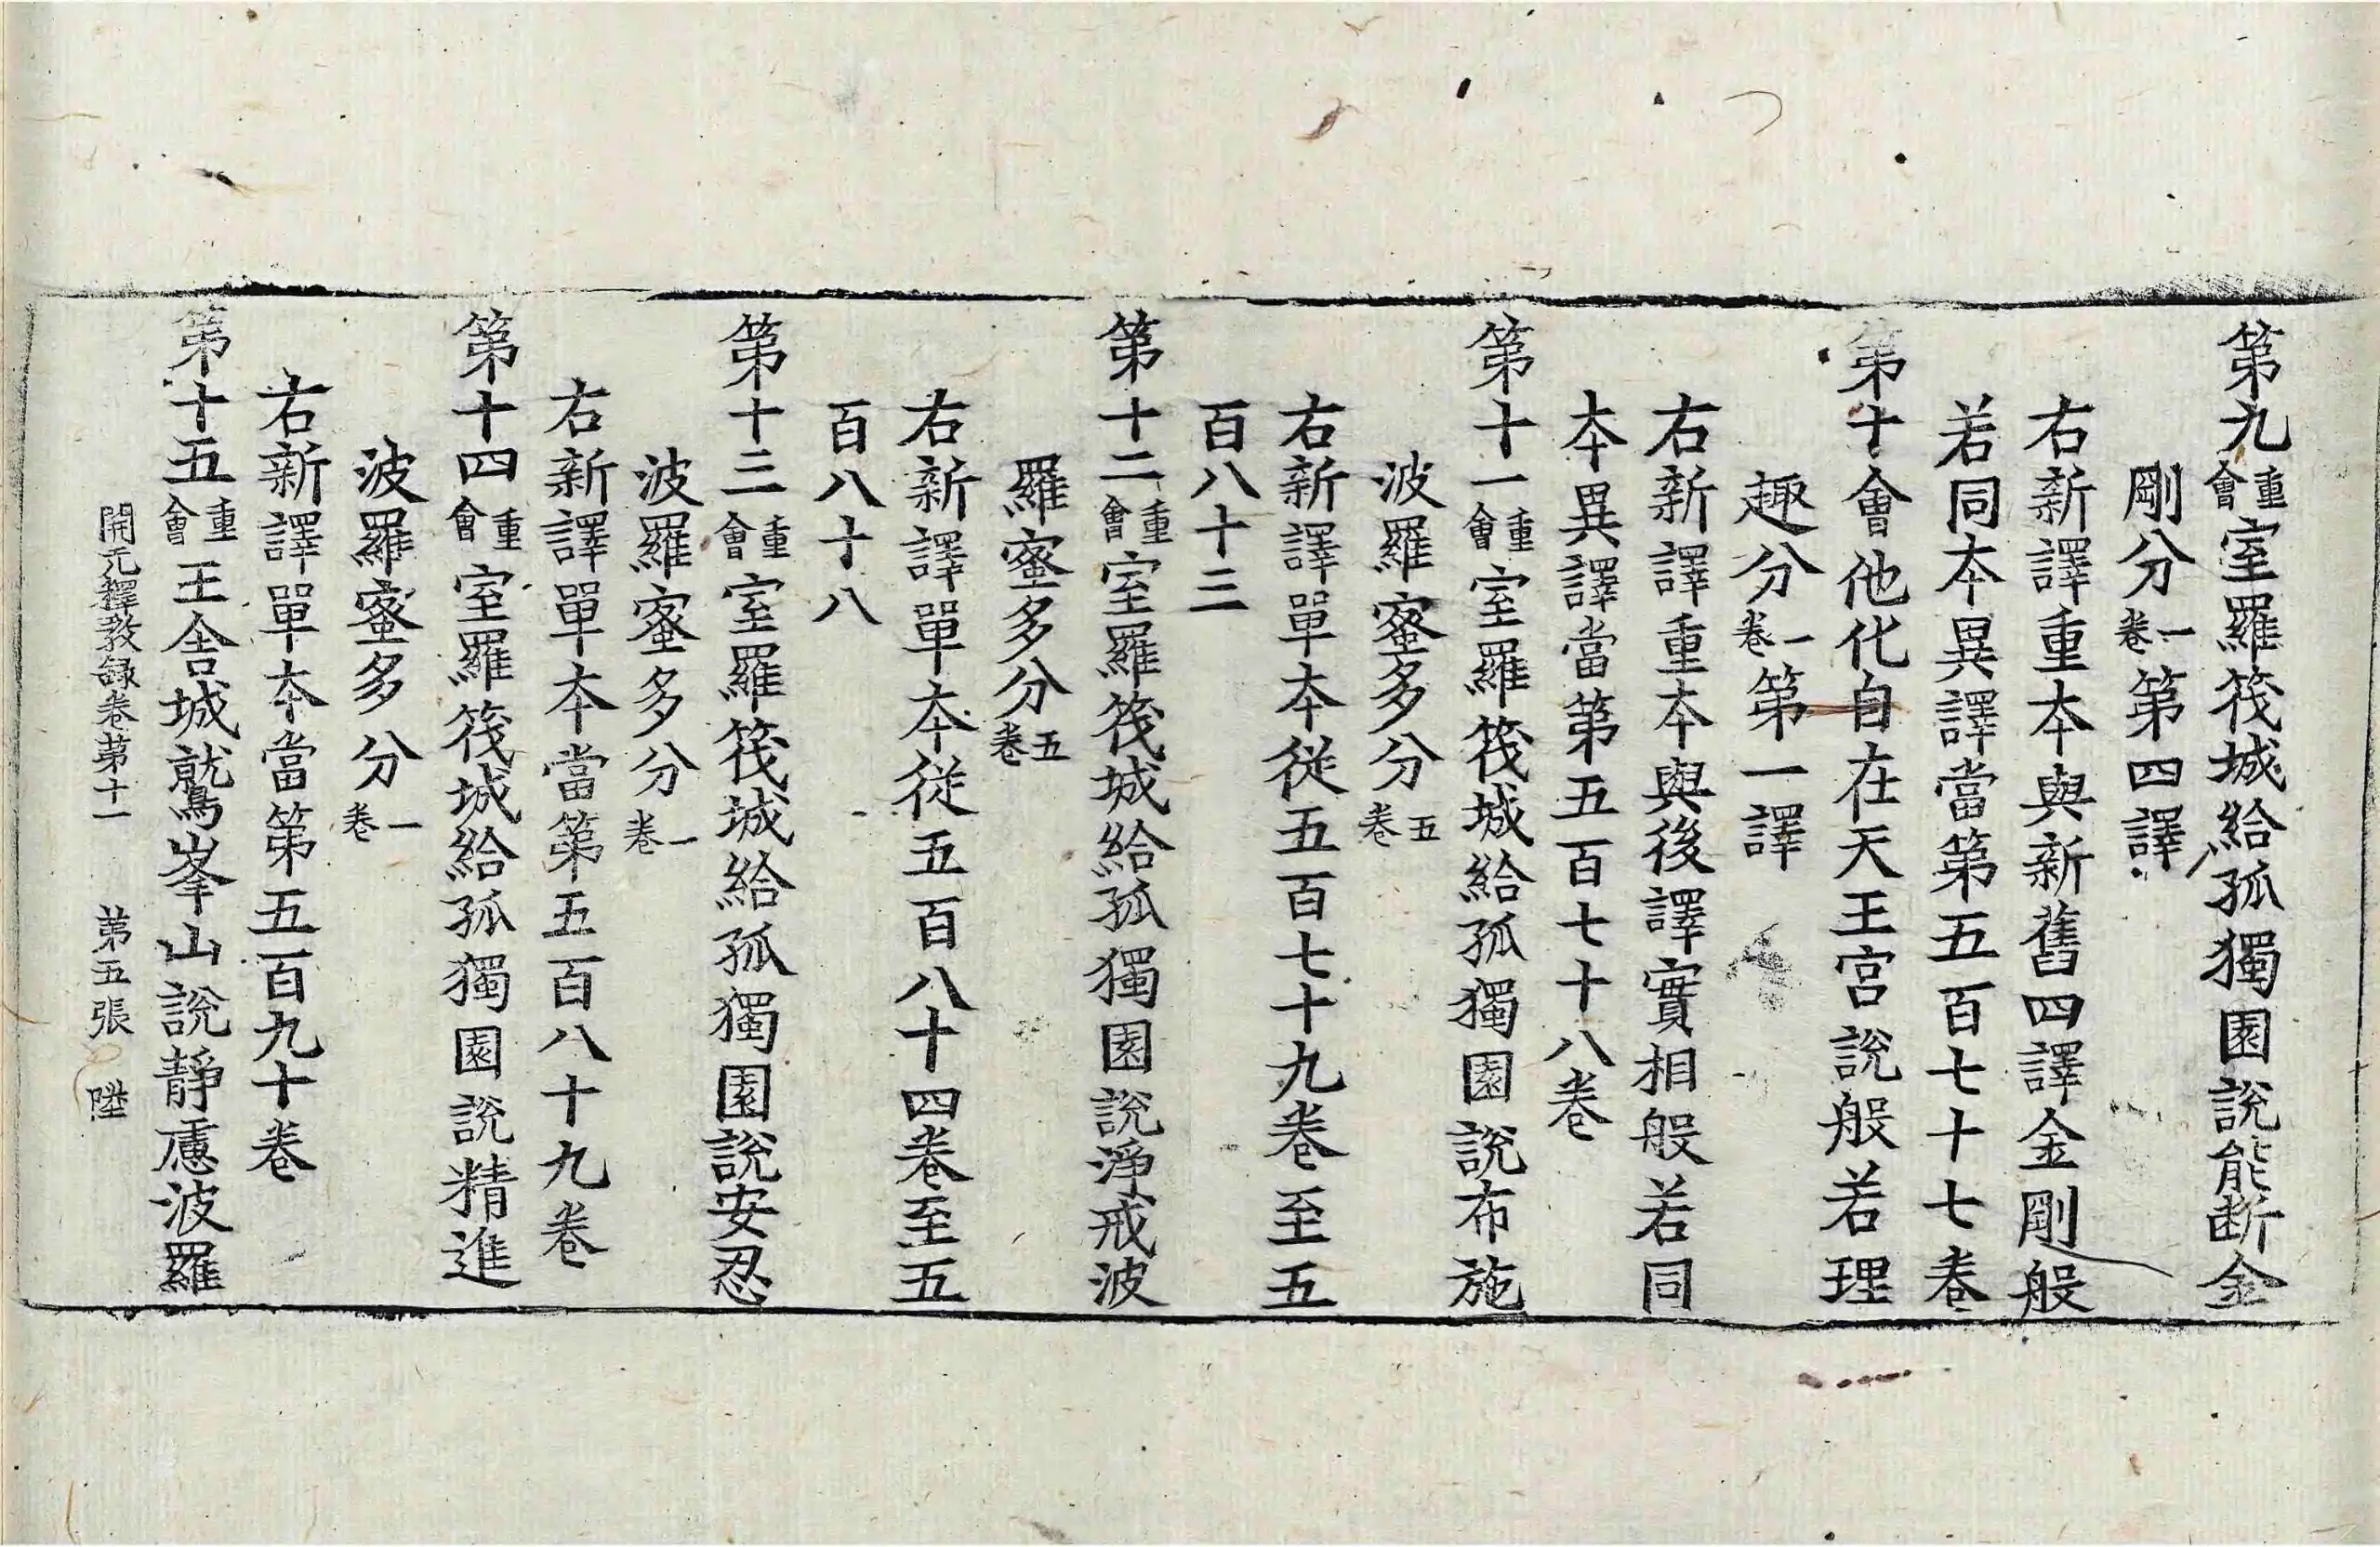 第九重會室羅筏城給孤獨園說能断金
剛分一卷第四譯
右新譯重本與新舊四譯金剛般
若同本異譯當第五百七十七卷
第十會他化自在天王宮說般若理
趣分一卷第一譯
右新譯重本與後譯實相般若同
本異譯當第五百七十八卷
第十一重會室羅筏城給孤獨園說布施
波羅蜜多分五卷
右新譯單本從五百七十九卷至五
百八十三
第十二重會室羅筏城給孤獨園說淨戒波
羅蜜多分五卷
右新譯單本從五百八十四卷至五
百八十八
第十三重會室羅筏城給孤獨園說安忍
波羅蜜多分一卷
右新譯單本當第五百八十九卷
第十四重會室羅筏城給孤獨園說精進
波羅蜜多分一卷
右新譯單本當第五百九十卷
第十五重會王舍城鷲峯山說靜慮波羅
開元釋教録卷第十一 第五張 陞